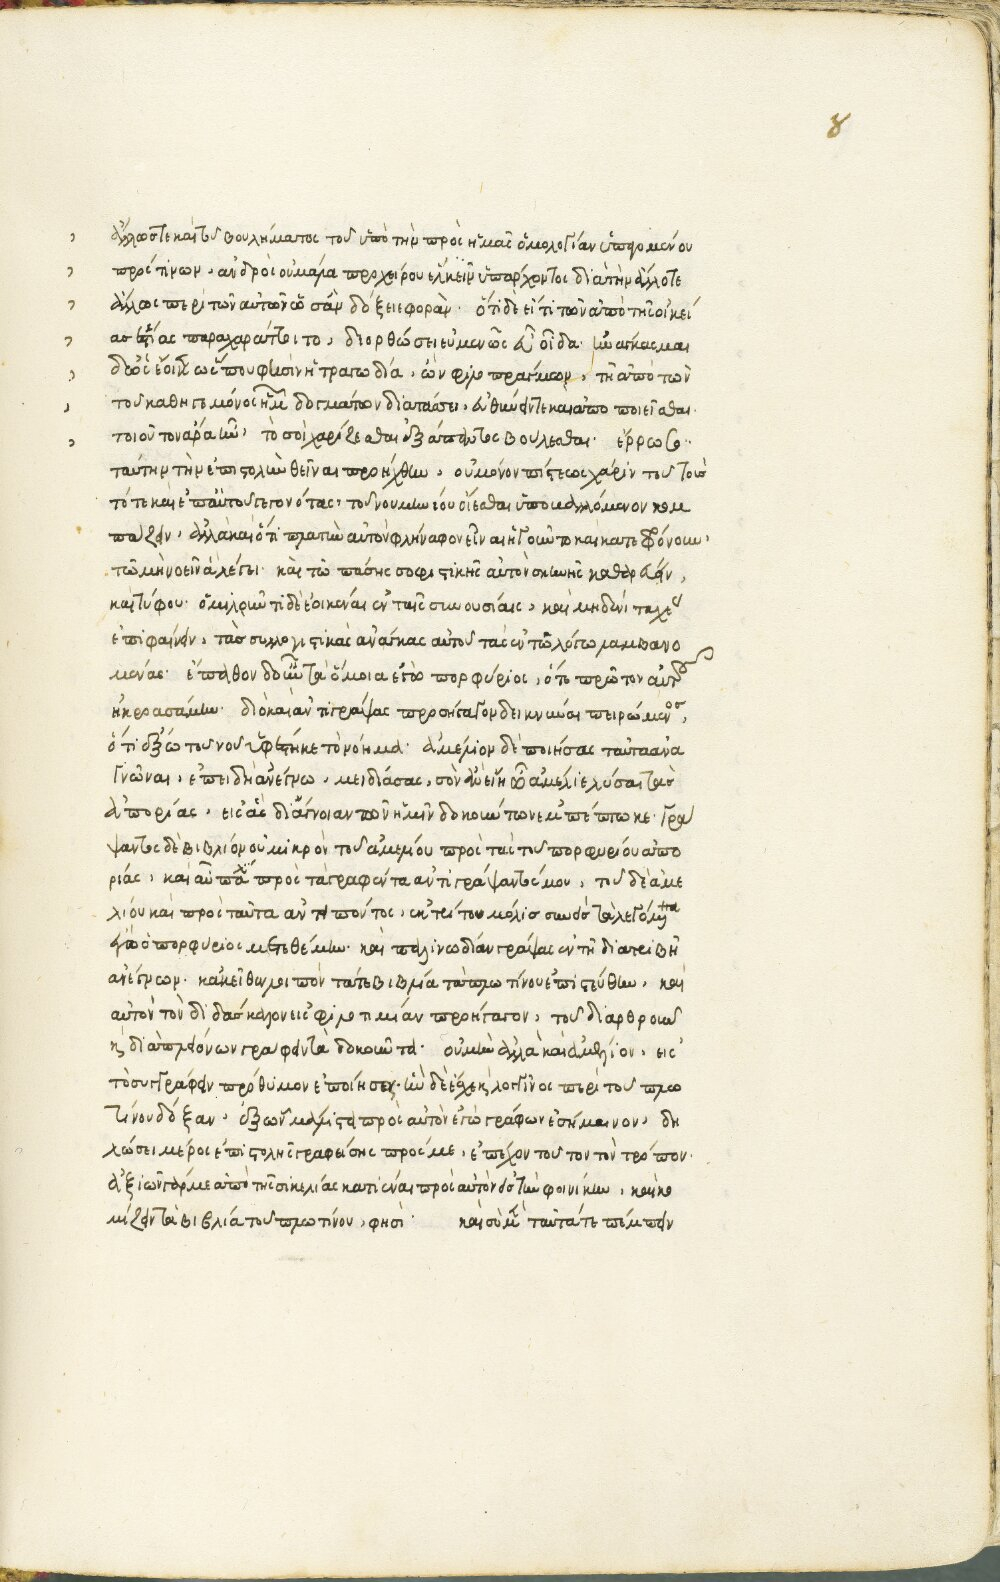 8
ἄλλως τε καὶ τοῦ βουλήματος τοῦ ὑπὸ τὴν πρὸς ἡμᾶς ὁμολογίαν ὑπαγομένου
πρός τινων, ἀνδρὸς οὐ μάλα προχείρου ἑλεῖν ὑπάρχοντος διὰ τὴν ἄλλοτε
ἄλλως περὶ τῶν αὐτῶν ὡς ἂν δόξειε φοράν. ὅτι δὲ εἴ τι τῶν ἀπὸ τῆς οἰκεί
ας ἑστίας παραχαράττοιτο, διορθώσει εὐμενῶς εὖ οἶδα. ἠνάγκασμαι
δ' ὡς ἔοικεν ὥς που φησὶν ἡ τραγῳδία, ὢν φιλοπράγμων, τῇ ἀπὸ τῶν
τοῦ καθηγεμόνος ἡμῶν δογμάτων διαστάσει, εὐθύνειν τε καὶ ἀποποιεῖσθαι.
τοιοῦτον ἄρα ἦν, τὸ σοὶ χαρίζεσθαι ἐξ ἅπαντος βούλεσθαι. ἔρρωσο.
ταύτην τὴν ἐπιστολὴν θεῖναι προήχθην, οὐ μόνον πίστεως χάριν τοῦ τοὺς
τότε καὶ ἐπ' αὐτοῦ γεγονότας, τοῦ νουμηνίου οἴεσθαι ὑποβαλλόμενον κομ
πάζειν, ἀλλὰ καὶ ὅτι πλατὺν αὐτὸν φλήναφον εἶναι ἡγοῦντο καὶ κατεφρόνουν,
τῷ μὴ νοεῖν ἃ λέγει. καὶ τῷ πάσης σοφιστικῆς αὐτὸν σκηνῆς καθαρεύειν,
καὶ τύφου. ὁμιλοῦντι δὲ ἐοικέναι ἐν ταῖς συνουσίαις, καὶ μηδενὶ ταχέως
ἐπιφαίνειν, τὰς συλλογιστικὰς ἀνάγκας αὐτοῦ τὰς ἐν τῷ λόγῳ λαμβανο
μένας. ἔπαθον δ' οὖν τὰ ὅμοια ἐγὼ πορφύριος, ὅτε πρῶτον αὐτοῦ
ἠκροασάμην. διὸ καὶ ἀντιγράψας προσήγαγον δεικνύναι πειρώμενος,
ὅτι ἔξω τοῦ νοῦ ὑφέστηκε τὸ νόημα. ἀμέλιον δὲ ποιήσας ταῦτα ἀνα
γνῶναι, ἐπειδὴ ἀνέγνω, μειδιάσας, σὸν ἂν εἴη ὦ ἀμέλιε λῦσαι τὰς
ἀπορίας, εἰς ἃς δι' ἄγνοιαν τῶν ἡμῖν δοκούντων ἐμπέπτωκε. γρά
ψαντος δὲ βιβλίον οὐ μικρὸν τοῦ ἀμελίου πρὸς τὰς τοῦ πορφυρίου ἀπο
ρίας, καὶ αὖ πάλιν πρὸς τὰ γραφέντα ἀντιγράψαντός μου, τοῦ δὲ ἀμε
λίου καὶ πρὸς ταῦτα ἀντειπόντος, ἐκ τρίτου μόλις συνεὶς τὰ λεγόμενα
ἐγὼ ὁ πορφύριος μετεθέμην. καὶ παλινῳδίαν γράψας ἐν τῇ διατριβῇ
ἀνέγνων. κἀκεῖθεν λοιπὸν τά τε βιβλία τὰ πλωτίνου ἐπιστεύθην, καὶ
αὐτὸν τὸν διδάσκαλον εἰς φιλοτιμίαν προήγαγον, τοῦ διαρθροῦν
κὶ διὰ πλειόνων γράφειν τὰ δοκοῦντα. οὐ μὴν ἀλλὰ καὶ ἀμέλιον, εἰς
τὸ συγγράφειν πρόθυμον ἐποίησεν. ἣν δὲ ἔσχεν κὶ λογγῖνος περὶ τοῦ πλω
τίνου δόξαν, ἐξ ὧν μάλιστα πρὸς αὐτὸν ἐγὼ γράφων ἐσήμαινον, δη
λώσει μέρος ἐπιστολῆς γραφείσης πρός με, ἐπέχον τοῦτον τὸν τρόπον.
ἀξιῶν γάρ με ἀπὸ τῆς σικελίας κατιέναι πρὸς αὐτὸν εἰς τὴν φοινίκην, καὶ κο
μίζειν τὰ βιβλία τοῦ πλωτίνου, φησί. καὶ σὺ μὲν ταῦτά τε πέμπειν